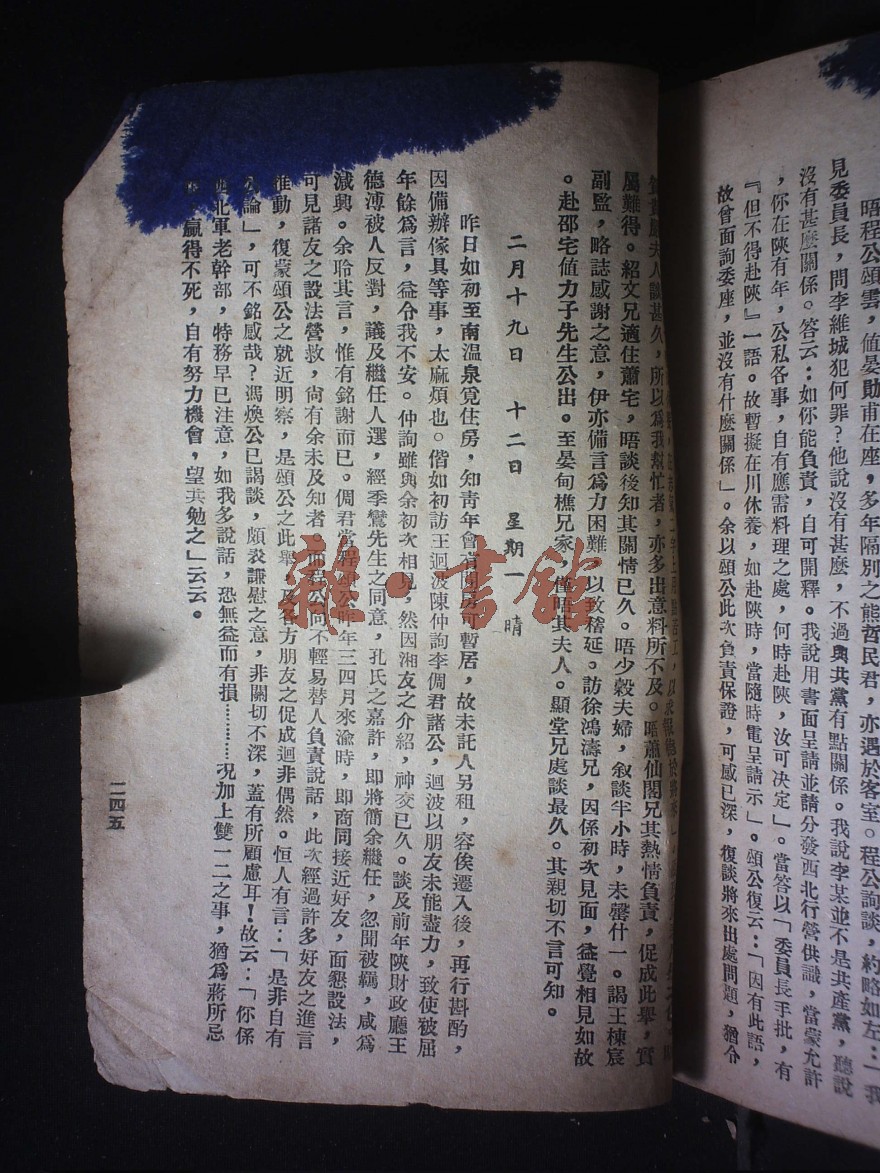 晤程公頌雲，值晏勛甫在座，多年隔別之熊哲民君，亦遇於客室。程公詢談，約略如左：「我
見委員長，問李維城犯何罪？他說沒有甚麼，不過與共黨有點關係。我說李某並不是共產黨，聽說
沒有甚麼關係。答云：如你能負責，自可開釋。我說用書面呈請並請分發西北行營供職，當蒙允許
，你在陝有年，公私各事，自有應需料理之處，何時赴陝，汝可決定」。當答以「委員長手批，有
『但不得赴陝』一語。故暫擬在川休養，如赴陝時，當隨時電呈請示」。頌公復云：「因有此語，
故曾面詢委座，並沒有什麼關係」。余以頌公此次負責保證，可感已深，復談將來出處問題，猶令
夫人談甚久，所以爲我幫忙者，亦多出意料所不及。晤蕭仙閣兄其熱情負責，促成此舉，實
屬難得。紹文兄適住蕭宅，晤談後知其關情已久。晤少穀夫婦，叙談半小時，未罄什一。謁王棟宸
副監，略誌感謝之意，伊亦備言爲力困難，以致稽延。訪徐鴻濤兄，因係初次見面，益覺相見如故
。赴邵宅値力子先生公出。至晏甸樵兄家，僅晤其夫人。顯堂兄處談最久。其親切不言可知。
二月十九日　十二日　星期一　晴
昨日如初至南温泉覓住房，知靑年會有房可暫居，故未託人另租，容俟遷入後，再行斟酌，
因備辦傢具等事，太麻煩也。偕如初訪王迴波陳仲詢李倜君諸公，迴波以朋友未能盡力，致使被屈
年餘爲言，益令我不安。仲詢雖與余初次相見，然因湘友之介紹，神交已久。談及前年陝財政廳王
德溥被人反對，議及繼任人選，經季鸞先生之同意，孔氏之嘉許，即將簡余繼任，忽聞被羈，咸爲
減興。余聆其言，惟有銘謝而已。倜君常程公昨年三四月來渝時，即商同接近好友，面懇設法，
可見諸友之設法營救，尙有余未及知者。而程公向不輕易替人負責說話，此次經過許多好友之進言
推動，復蒙頌公之就近明察，是頌公之此舉，及各方朋友之促成迴非偶然。恒人有言：「是非自有
公論」，可不銘感哉？馮煥公已謁談，頗表謙慰之意，非關切不深，蓋有所顧慮耳！故云：「你係
西北軍老幹部，特務早已注意，如我多說話，恐無益而有損…………况加上雙一二之事，猶爲蔣所忌
，贏得不死，自有努力機會，望共勉之」云云。
二四五
雜·書館